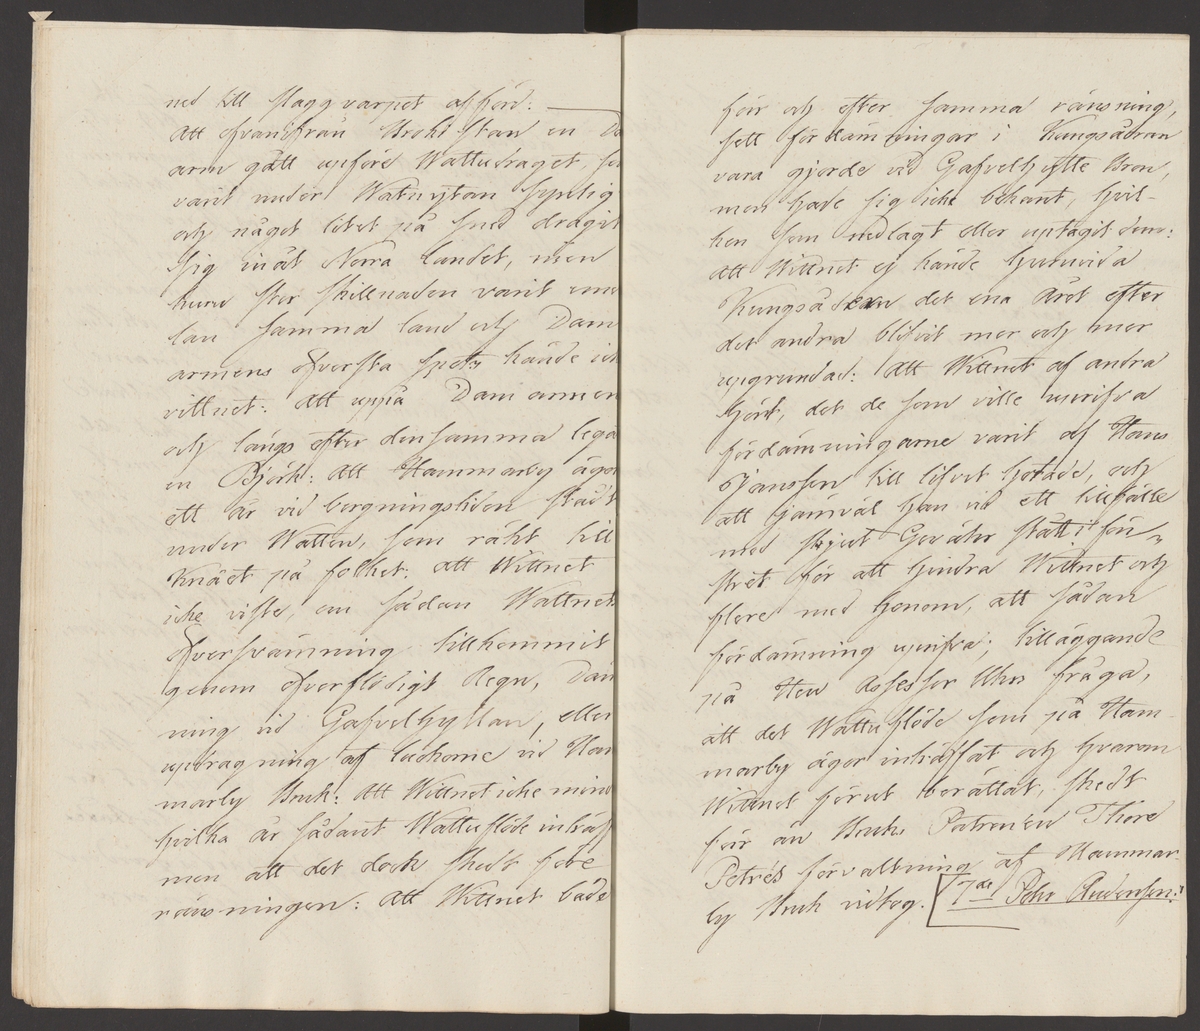 ned till slaggvarpet afförd: —
att ofvanifrån Broht stan en Da
arm gått utföre Wattudraget, som
varit under Watnytan synlig
och något litet på sned dragit
sig inåt Norra landet, men
huru stor skillnaden varit emel
lan samma land och Dam
armens öfversta spets kände ick
vittnet: att uppå Dam armen
och längs efter densamma lego
en Björk: att Hammarby ägor
ett år vid bergningstiden stådt
under Watten, som räkt till
Knäet på folket: att Wittnet
icke viste, om sådan Wattnets
öfversvämning tillkommit
genom öfverflödigt Regn, Däm
ning vid Gafvelhyttan, eller
updragning af luckorne vid Ham
marby Bruk: att Wittnet icke mins
hvilka år sådant Wattuflöde inträf
men att det dock skedt före
ränsningen: att Wittnet både
för och efter samma ränsning,
sett fördämningar i Kungsådran
vara gjorde vid Gafvelhytte Bron,
men hade sig icke bekant, hvil-
ken som nedlagt eller uptagit dem:
att Wittnet ej kände huruvida
Kungsådran det ena Året efter
det andra blifvit mer och mer
upgrundad: att Wittnet af andra
hört, det de som ville uprifva
fördämningarne varit af Hans
Jansson till lifvet hotade, och
att jämväl han vid ett tillfälle
med skjut Gevähr stått i fön-
stret för att hindra Wittnet och
flere med honom, att sådan
fördämning uprifva; tilläggande
på Herr Assessor Uhrs fråga,
att det Wattuflöde som på Ham-
marby ägor inträffat och hvarom
Wittnet förut berättat, skedt
för än Bruks Patronen Thore
Petrés förvaltning af Hammar-
by Bruk vidtog. 7de Pehr Andersson: